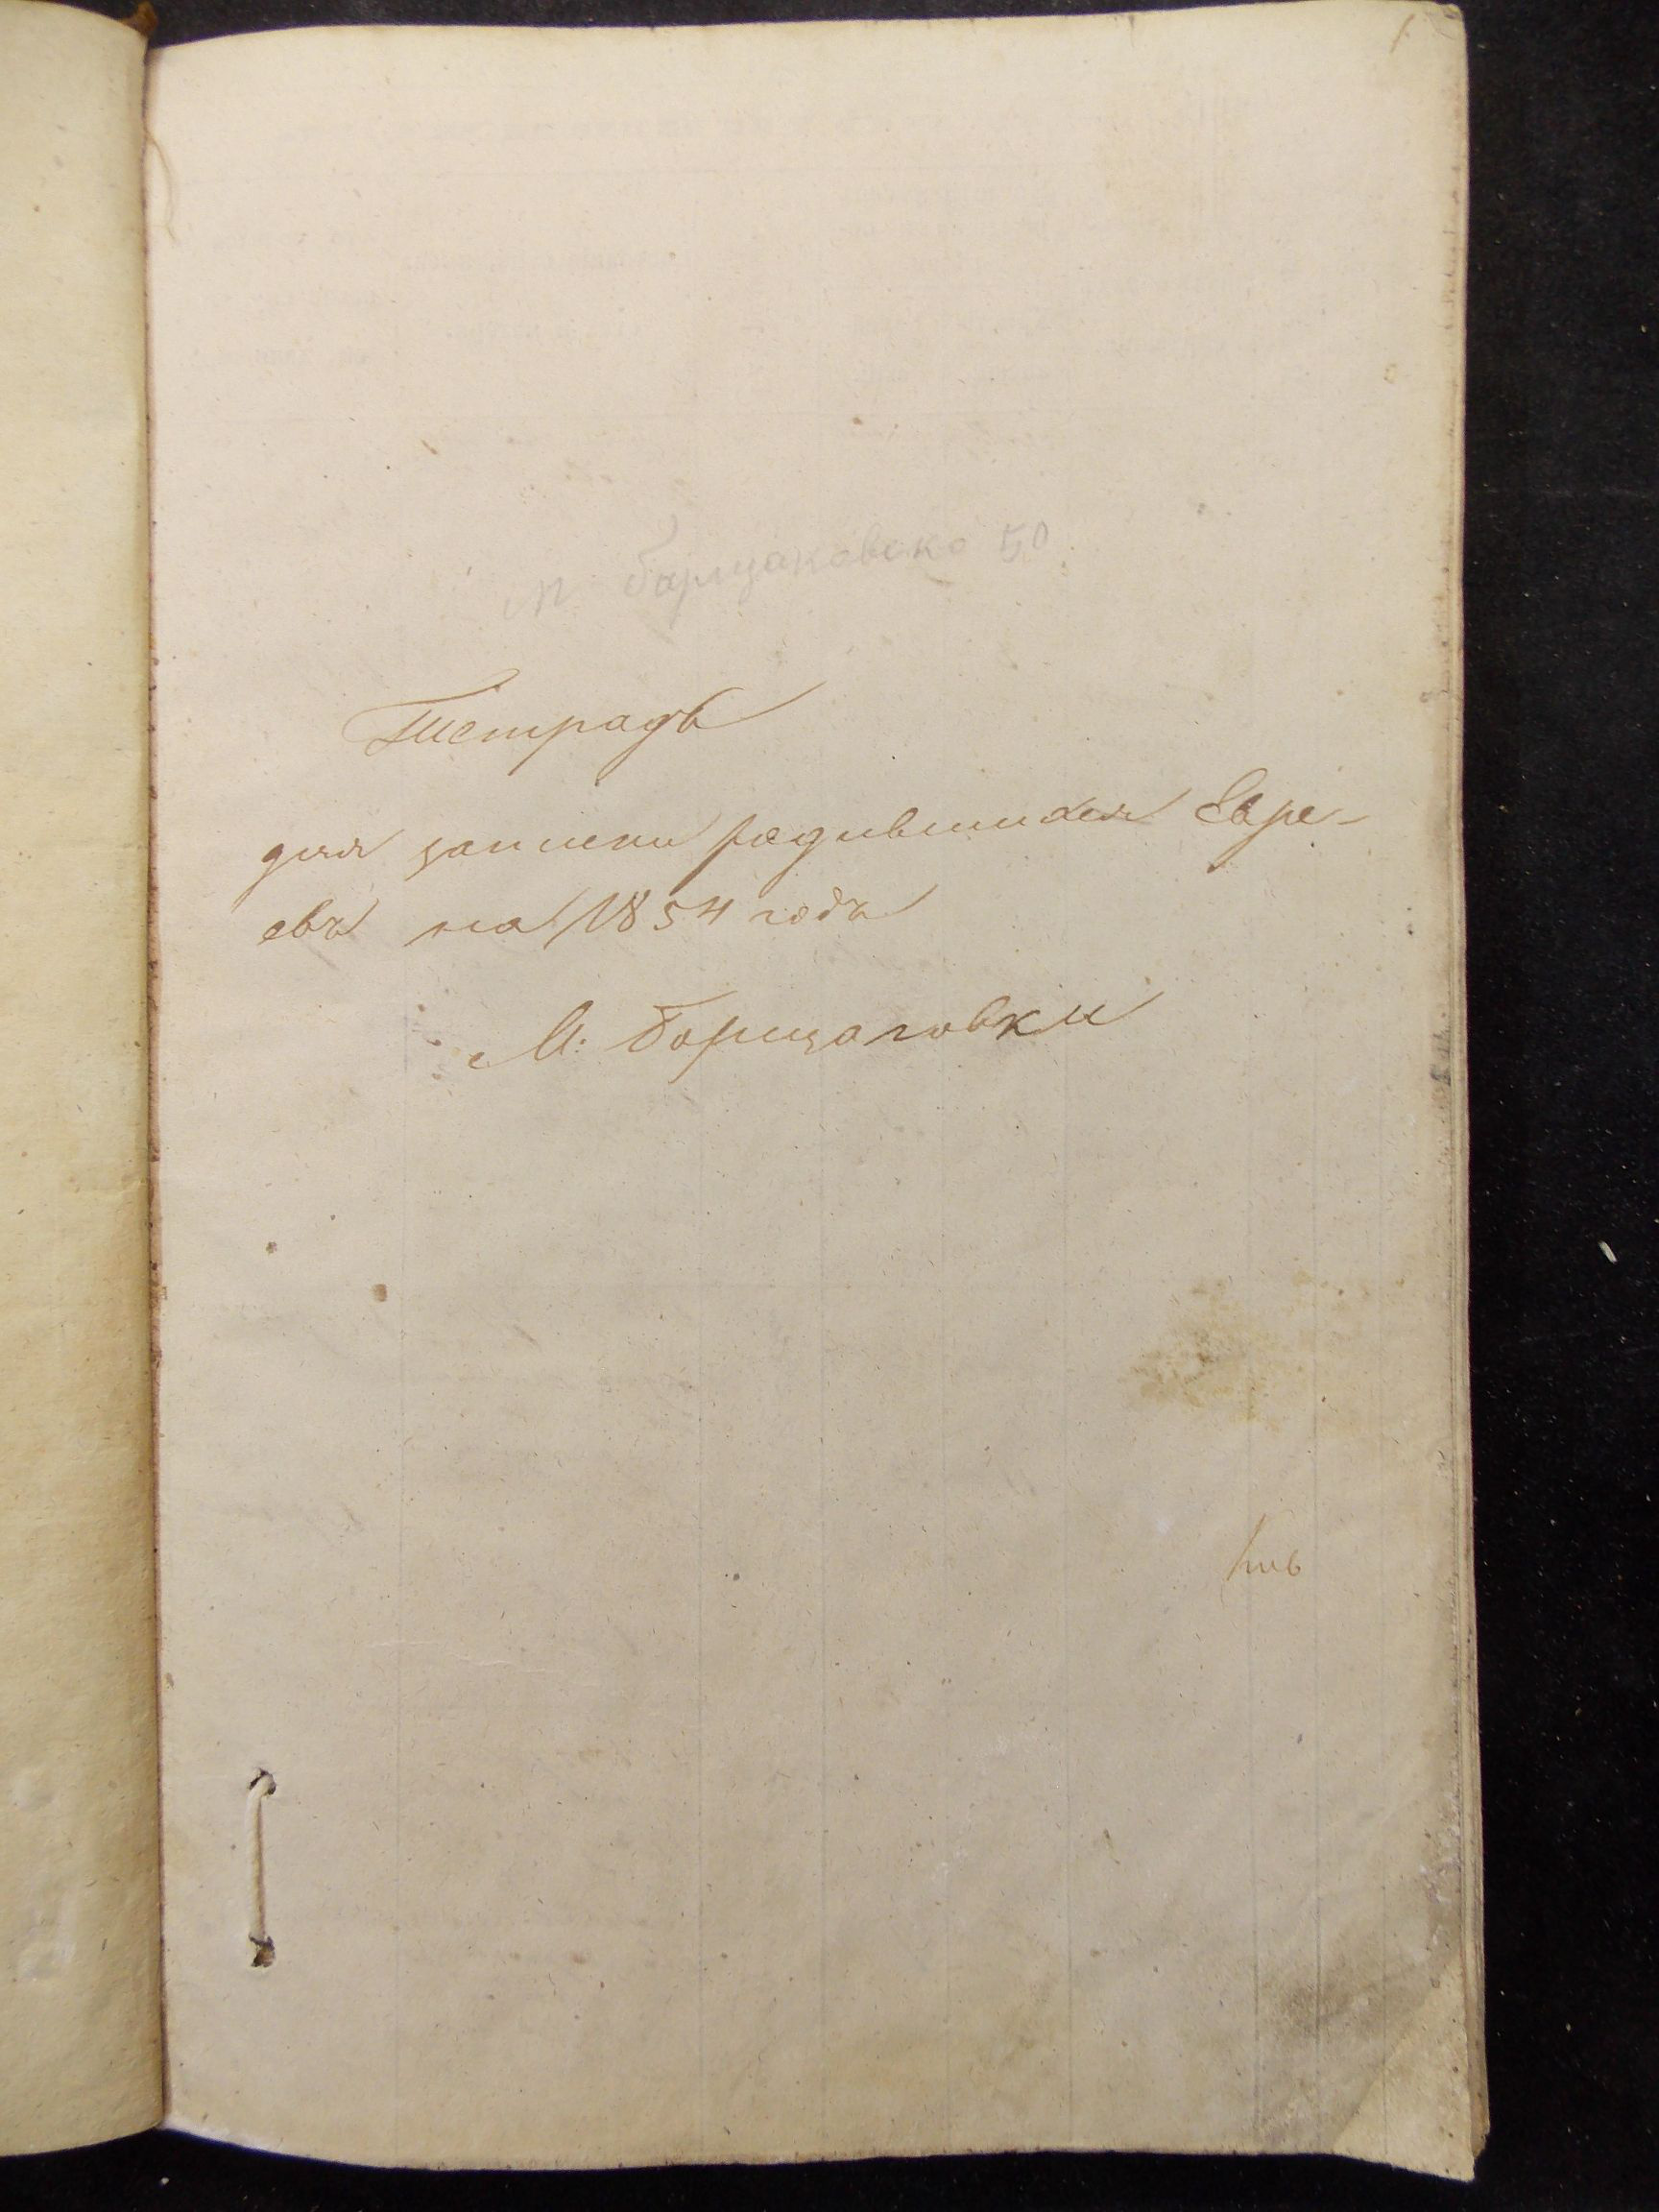 1
М Борщаковско 50
Тетрадь
для записки родившихся Евре-
евъ на 1854 годъ
М: Борщаговки